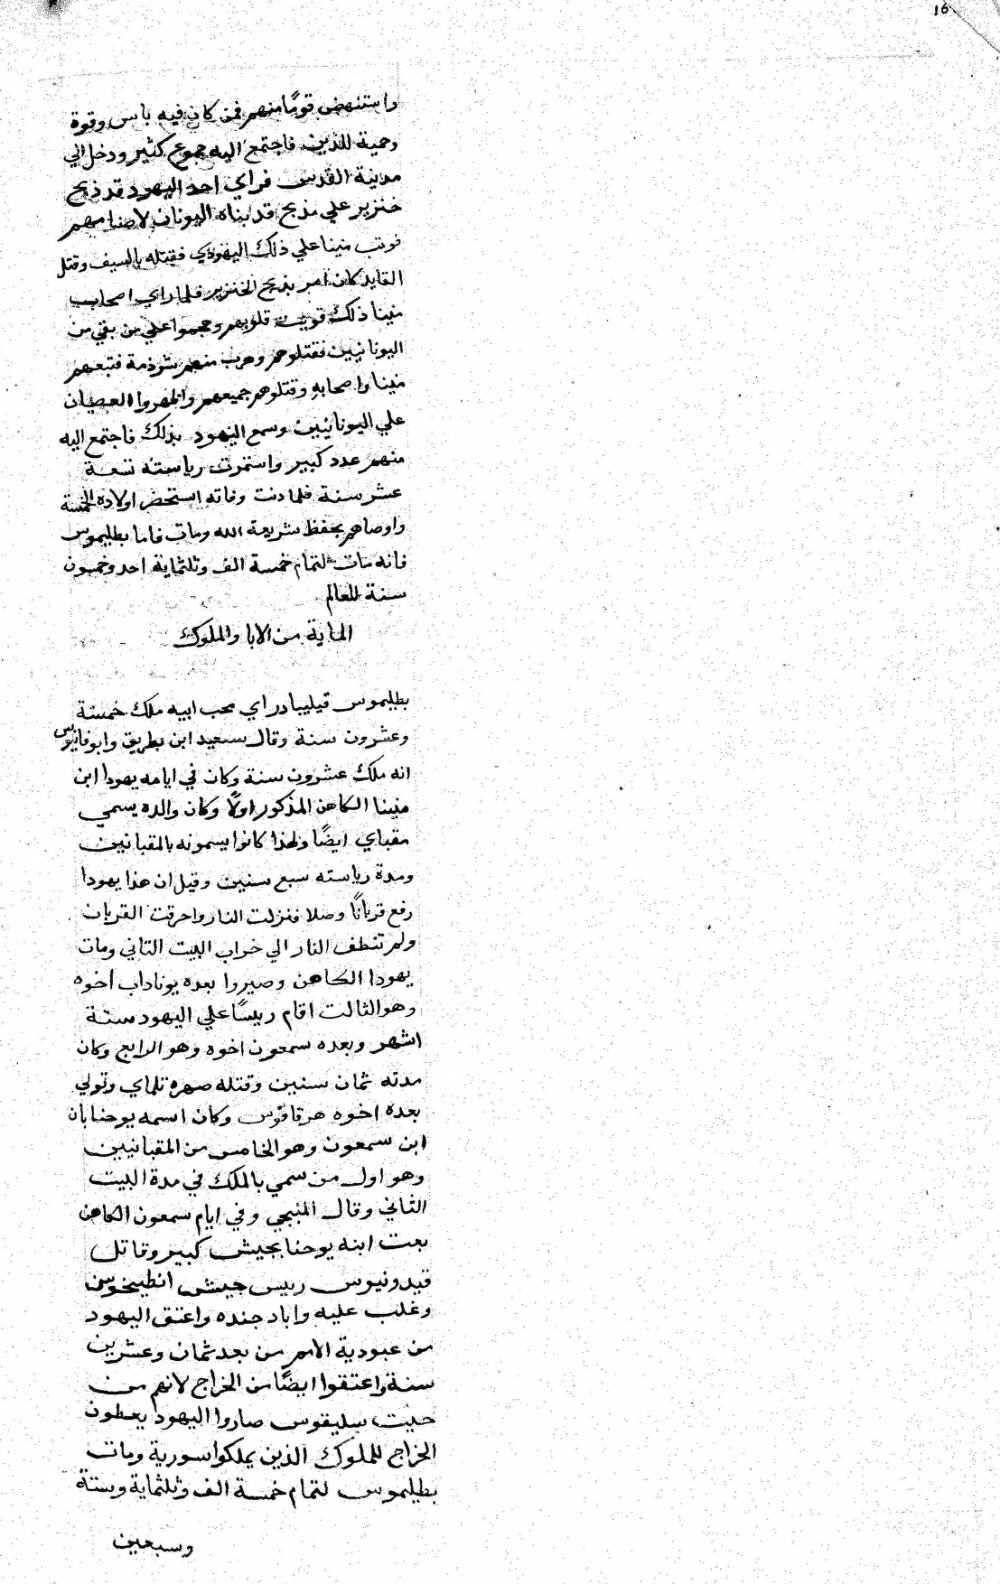 16
واستنهض قومًا منهم فمن كان فيه باس وقوة
وحمية للدين فاجتمع اليه جموع كثير ودخل الي
مدينة القدس فراي احد اليهود قد ذبح
خنزير علي مذبح قد بناه اليونان لاصنامهم
فوتب متينا علي ذلك اليهودي فقتله بالسيف وقتل
القايد كان امر بذبح الخنزير فلما راي اصحاب
متينا ذلك قويت قلوبهم وهجموا علي من بقي من
اليونانيين فقتلوهم وهرب منهم شرذمة فتبعهم
متينا واصحابه وقتلوهم جميعهم واظهروا العصيان
علي اليونانيين وسمع اليهود بذلك فاجتمع اليه
منهم عدد كبير واستمرت رياسته تسعة
عشر سنة فلما دنت وفاته استحضر اولاده الخمسة
واوصاهم بحفظ شريعة الله ومات فاما بطليموس
فانه مات لتمام خمسة الف وثلثماية احد وخمسون
سنة للعالم
الماية من الابا والملوك
بطليموس فيليبادراي محب ابيه ملك خمسة
وعشرون سنة وقال سعيد ابن بطريق وابوفانيوس
انه ملك عشرون سنة وكان في ايامه يهودا ابن
متينا الكاهن المذكور اولًا وكان والده يسمي
مقباي ايضًا ولهذا كانوا يسمونه بالمقبانيين
ومدة رياسته سبع سنين وقيل ان هذا يهودا
رفع قربانًا وصلا فنزلت النار واحرقت القربان
ولم تنطف النار الي خراب البيت التاني ومات
يهودا الكاهن وصيروا بعده يوناداب اخوه
وهو الثالت اقام ريسًا علي اليهود ستة
اشهر وبعده سمعون اخوه وهو الرابع وكان
مدته ثمان سنين وقتله صهره تلماي وتولي
بعده اخوه هرقانوس وكان اسمه يوحنا بان
ابن سمعون وهو الخامس من المقبانيين
وهو اول من سمي بالملك في مدة البيت
الثاني وقال المنبجي وفي ايام سمعون الكاهن
بعت ابنه يوحنا بجيش كبير وقاتل
قيدونيوس ريس جيش انطيخوس
وغلب عليه واباد جنده واعتق اليهود
من عبودية الامم من بعد ثمان وعشرين
سنة واعتقوا ايضًا من الخراج لانهم من
حيت سليقوس صاروا اليهود يعطون
الخراج للملوك الذين يملكوا سورية ومات
بطليموس لتمام خمسة الف وثلثماية وستة
وسبعين